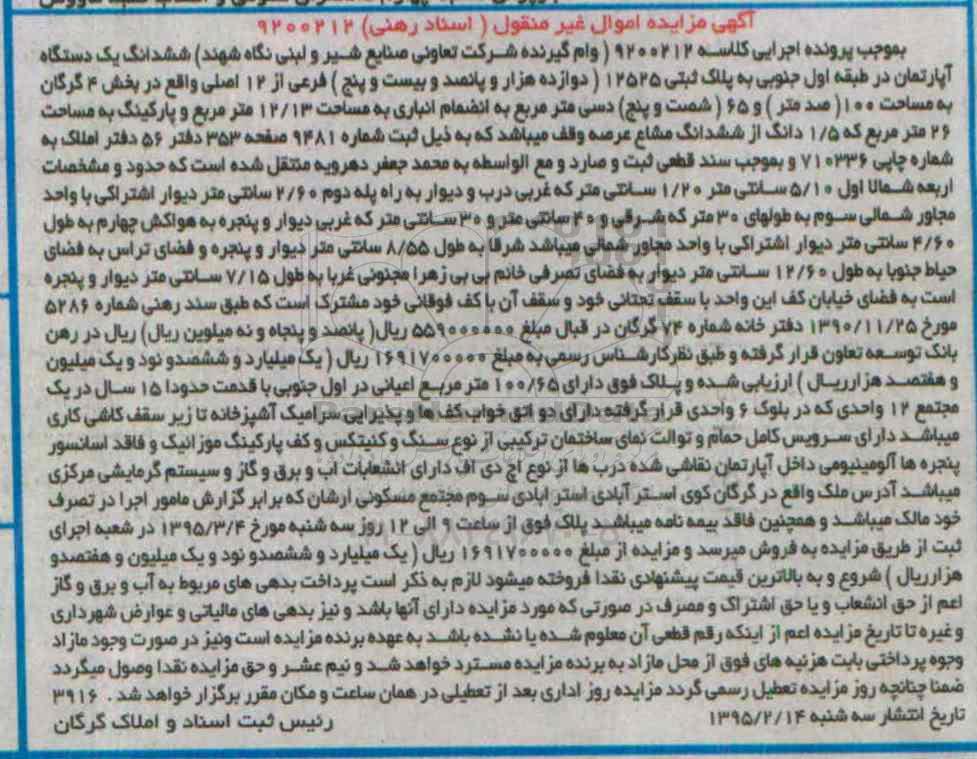 آگهی مزایده اموال غیر منقول ( اسناد رهنی) ۹۲۰۰۲۱۲
بموجب پرونده اجرایی کلاسه ۹۲۰۰۲۱۲ ( وام گیرنده شرکت تعاونی صنایع شیر و لبنی نگاه شهند) ششدانگ یک دستگاه
آپارتمان در طبقه اول جنوبی به پلاک ثبتی ۱۲۵۲۵ ( دوازده هزار و پانصد و بیست و پنج ) فرعی از ۱۲ اصلی واقع در بخش ۴ گرگان
به مساحت ۱۰۰( صد متر ) و ۶۵ ( شصت و پنج) دسی متر مربع به انضمام انباری به مساحت ۱۲/۱۳ متر مربع و پارکینگ به مساحت
۲۶ متر مربع که ۱/۵ دانگ از ششدانگ مشاع عرصه وقف میباشد که به ذیل ثبت شماره ۹۴۸۱ صفحه ۳۵۳ دفتر ۵۶ دفتر املاک به
شماره چاپی ۷۱۰۳۳۶ و بموجب سند قطعی ثبت و صادر و مع الواسطه به محمد جعفر دهرویه منتقل شده است که حدود و مشخصات
اربعه شمالا اول ۵/۱۰ سانتی متر ۱/۲۰ سانتی متر که غربی درب و دیوار به راه پله دوم ۲/۶۰ سانتی متر دیوار اشتراکی با واحد
مجاور شمالی سوم به طولهای ۳۰ متر که شرقی و ۴۰ سانتی متر و ۳۰ سانتی متر که غربی دیوار و پنجره به هواکش چهارم به طول
۴/۶۰ سانتی متر دیوار اشتراکی با واحد مجاور شمالی میباشد شرقا به طول ۸/۵۵ سانتی متر دیوار و پنجره و فضای تراس به فضای
حیاط جنوبا به طول ۱۲/۶۰ سانتی متر دیوار به فضای تصرفی خانم بی بی زهرا مجنونی غربا به طول ۷/۱۵ سانتی متر دیوار و پنجره
است به فضای خیابان کف این واحد با سقف تحتانی خود و سقف آن با کف فوقانی خود مشترک است که طبق سند رهنی شماره ۵۲۸۶
مورخ ۱۳۹۰/۱۱/۲۵ دفتر خانه شماره ۷۴ گرگان در قبال مبلغ ۵۵۹۰۰۰۰۰۰ ریال( پانصد و پنجاه و نه میلوین ریال) ریال در رهن
بانک توسعه تعاون قرار گرفته و طبق نظر کارشناس رسمی به مبلغ ۱۶۹۱۷۰۰۰۰۰ ریال ( یک میلیارد و ششصدو نود و یک میلیون
و هفتصد هزارریال ) ارزیابی شده و پلاک فوق دارای ۱۰۰/۶۵ متر مربع اعیانی در اول جنوبی با قدمت حدودا ۱۵ سال در یک
مجتمع ۱۲ واحدی که در بلوک ۶ واحدی قرار گرفته دارای دو اتق خواب کف ها و پذیرایی سرامیک آشپزخانه تا زیر سقف کاشی کاری
میباشد دارای سرویس کامل حمام و توالت نمای ساختمان ترکیبی از نوع سنگ و کنیتکس و کف پارکینگ موزائیک و فاقد اسانسور
پنجره ها آلومینیومی داخل آپارتمان نقاشی شده درب ها از نوع اچ دی اف دارای انشعابات اب و برق و گاز و سیستم گرمایشی مرکزی
میباشد آدرس ملک واقع در گرگان کوی استر آبادی استر ابادی سوم مجتمع مسکونی ارشان که برابر گزارش مامور اجرا در تصرف
خود مالک میباشد و همچنین فاقد بیمه نامه میباشد پلاک فوق از ساعت ۹ الی ۱۲ روز سه شنبه مورخ ۱۳۹۵/۳/۴ در شعبه اجرای
ثبت از طریق مزایده به فروش میرسد و مزایده از مبلغ ۱۶۹۱۷۰۰۰۰۰ ریال ( یک میلیارد و ششصدو نود و یک میلیون و هفتصدو
هزارریال ) شروع و به بالاترین قیمت پیشنهادی نقدا فروخته میشود لازم به ذکر است پرداخت بدهی های مربوط به آب و برق و گاز
اعم از حق انشعاب و یا حق اشتراک و مصرف در صورتی که مورد مزایده دارای آنها باشد و نیز بدهی های مالیاتی و عوارض شهرداری
و غیره تا تاریخ مزایده اعم از اینکه رقم قطعی آن معلوم شده یا نشده باشد به عهده برنده مزایده است ونیز در صورت وجود مازاد
وجوه پرداختی بابت هزینه های فوق از محل مازاد به برنده مزایده مسترد خواهد شد و نیم عشر و حق مزایده نقدا وصول میگردد
ضمنا چنانچه روز مزایده تعطیل رسمی گردد مزایده روز اداری بعد از تعطیلی در همان ساعت و مکان مقرر برگزار خواهد شد . ۳۹۱۶
تاریخ انتشار سه شنبه ۱۳۹۵/۲/۱۴
رئیس ثبت اسناد و املاک گرگان